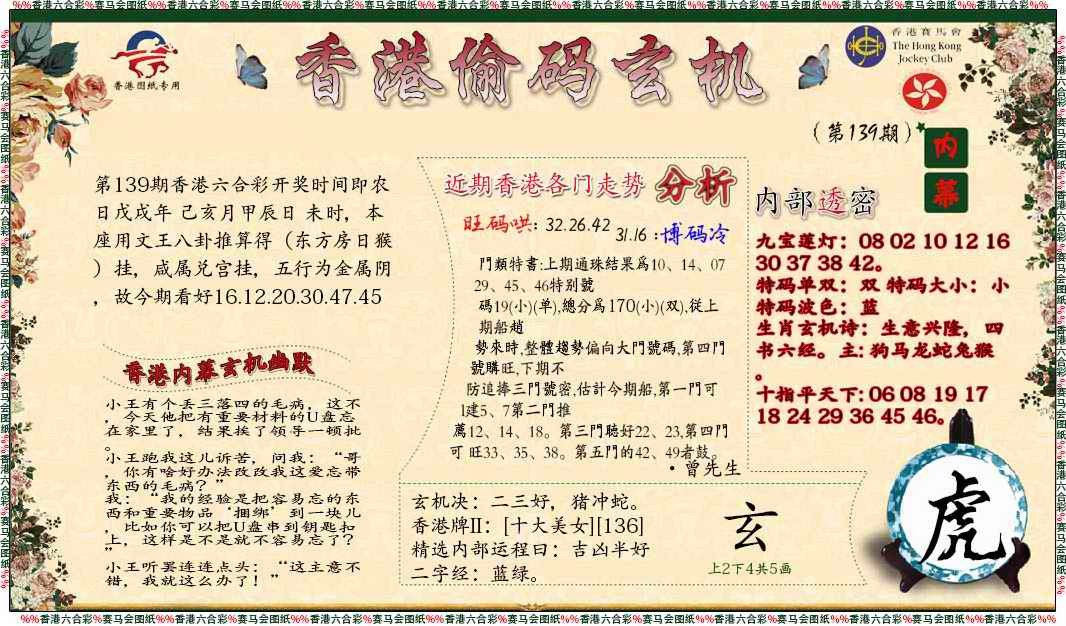 %%香港六合彩%赛马会图纸%%香港六合彩%赛马会图纸%%香港六合彩%赛马会图纸%%香港六合彩%赛马会图纸%%香港六合彩%赛马会图纸%%香港六合彩%赛马会图纸%%香港六合彩%赛马会图纸%%
香港图纸专用
香港偷码玄机
香港賽馬會
The Hong Kong
Jockey Club
(第139期)
内
幕
第139期香港六合彩开奖时间即农
日戊戌年 己亥月甲辰日 未时，本
座用文王八卦推算得（东方房日猴
）挂，咸属兑宫挂，五行为金属阴
，故今期看好16.12.20.30.47.45
香港内幕玄机幽默
小王有个丢三落四的毛病，这不
，今天他把有重要材料的U盘忘
在家里了，结果挨了领导一顿批
。
小王跑我这儿诉苦，问我：“哥
，你有啥好办法改改我这爱忘带
东西的毛病？”
我：“我的经验是把容易忘的东
西和重要物品‘捆绑’到一块儿
，比如你可以把U盘串到钥匙扣
上，这样是不是就不容易忘了？
”
小王听罢连连点头：“这主意不
错，我就这么办了！”
近期香港各门走势 分析
旺码哄: 32.26.42
31.16 :博码冷
門類特書:上期通珠結果爲10、14、07
29、45、46特别號
碼19(小)(单),總分爲170(小)(双),従上
期船趙
勢來時,整體趨勢偏向大門號碼,第四門
號購旺,下期不
防追捧三門號密,估計今期船,第一門可
1建5、7第二門推
薦12、14、18。第三門聽好22、23,第四門
可 旺33、35、38。第五門的42、49者鼓。
·曾先生
玄机决：二三好，猪冲蛇。
香港牌II：[十大美女][136]
精选内部运程曰：吉凶半好
二字经：蓝绿。
玄
上2下4共5画
内部透密
九宝莲灯：08 02 10 12 16
30 37 38 42。
特码单双：双 特码大小：小
特码波色：蓝
生肖玄机诗：生意兴隆，四
书六经。主: 狗马龙蛇兔猴
。
十指平天下: 06 08 19 17
18 24 29 36 45 46。
虎
%%香港六合彩%赛马会图纸%%香港六合彩%赛马会图纸%%香港六合彩%赛马会图纸%%香港六合彩%赛马会图纸%%香港六合彩%赛马会图纸%%香港六合彩%赛马会图纸%%香港六合彩%赛马会图纸%%